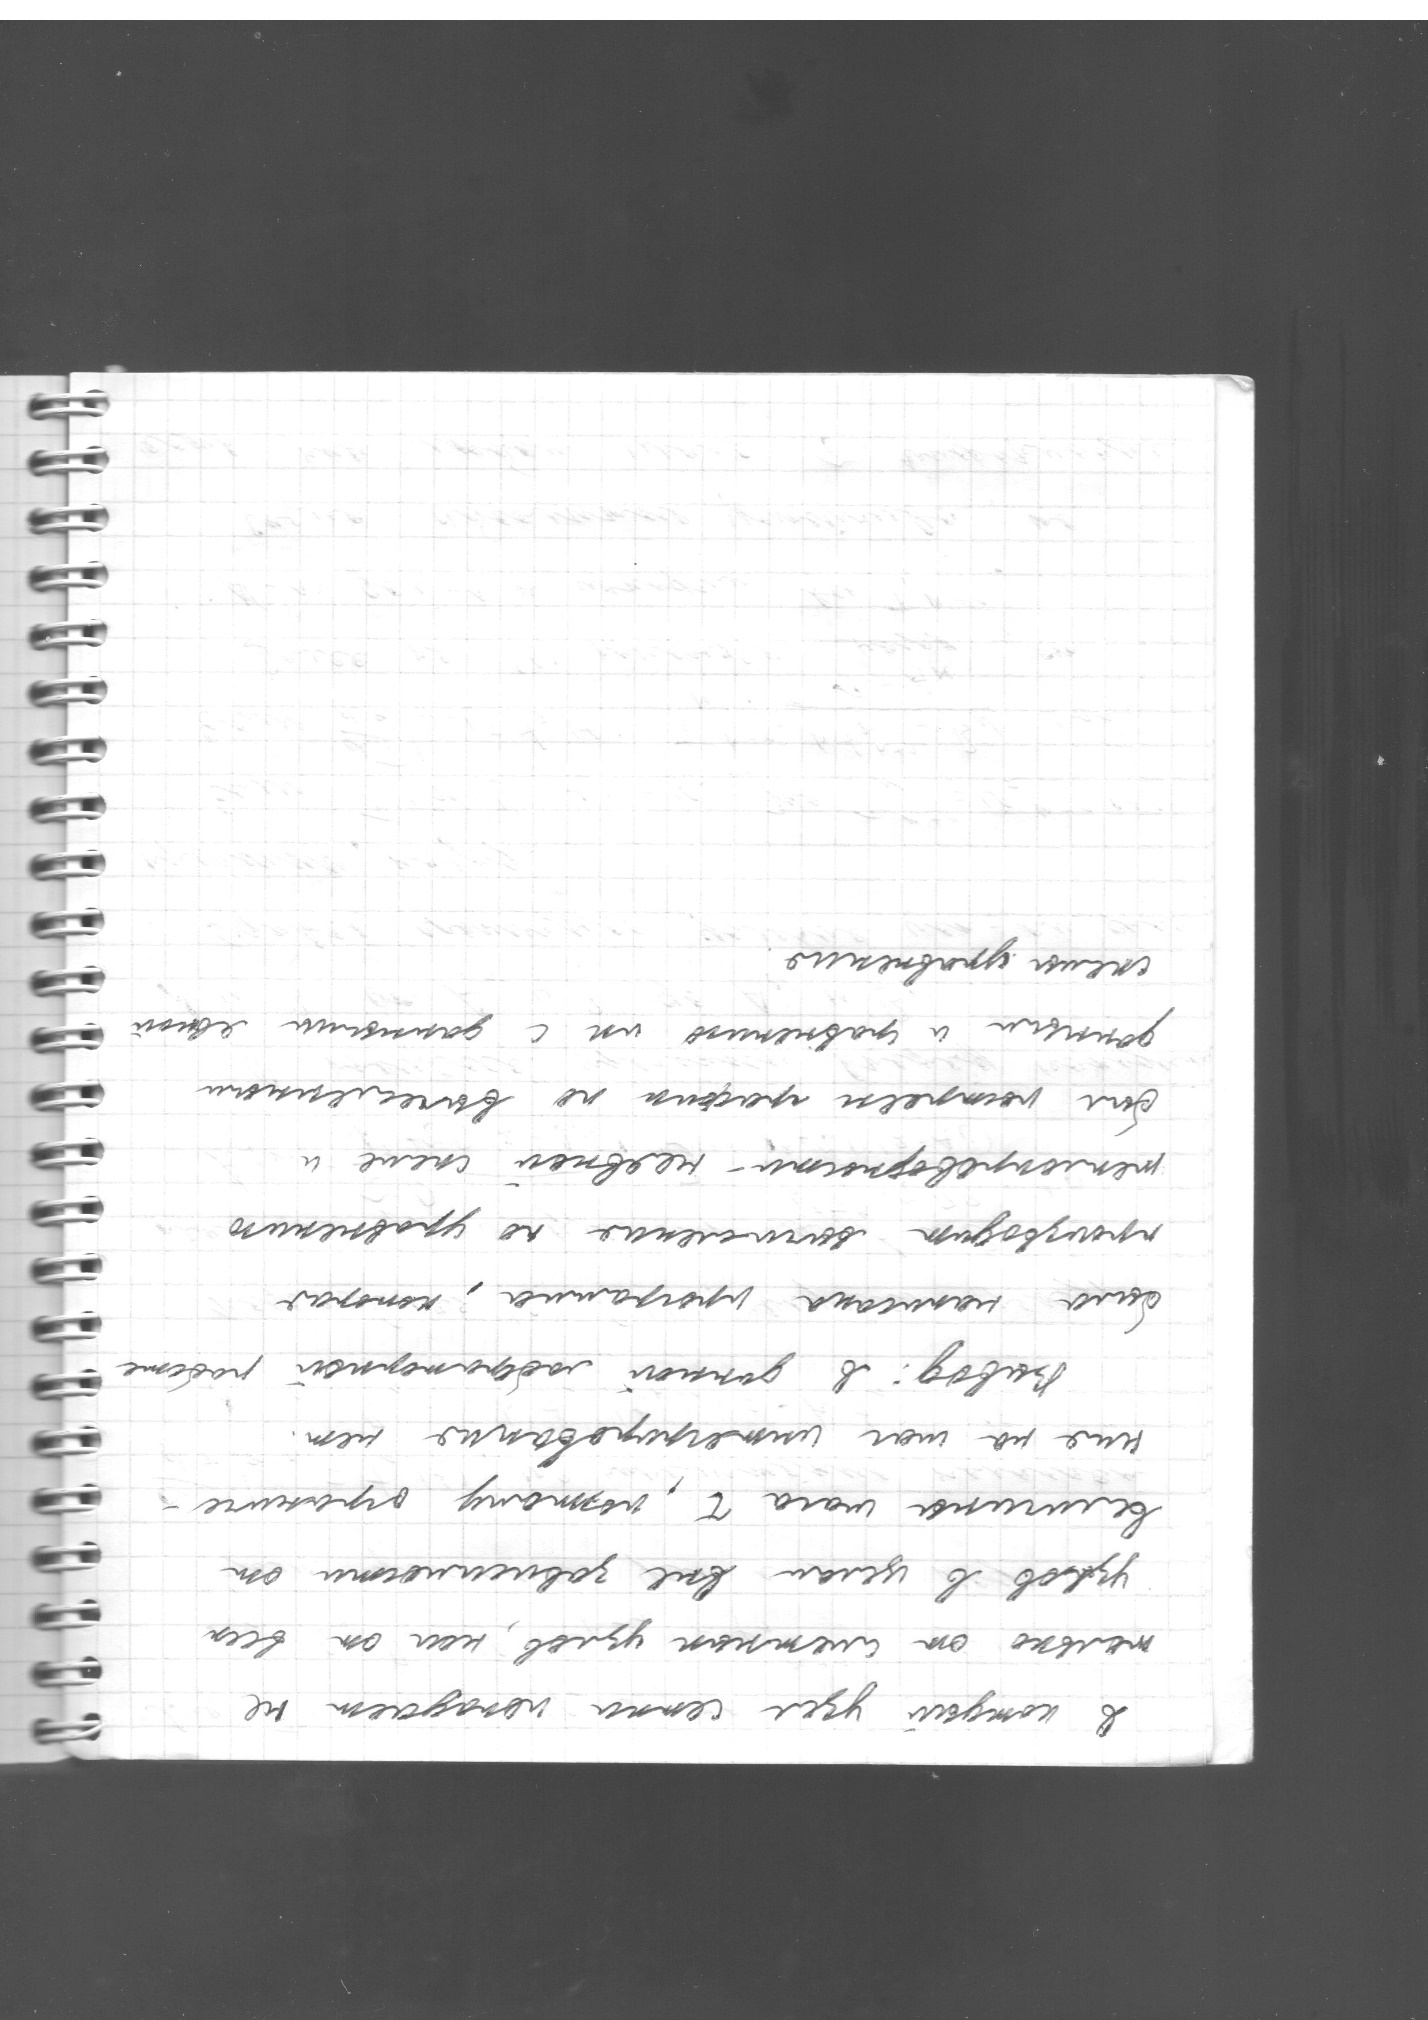 в каждый узел сетки попадает не
только от соседних узлов, но и от всех
узлов в целом вне зависимости от
величины шага τ, поэтому ограниче-
ние на шаг интегрирования нет.
Вывод: в данной лабораторной работе
была написана программа, которая
производит вычисление по уравнению
теплопроводности - неявной схеме и
был построен график по вычисленным
данным и сравнению их с данными явной
схемы уравнения.